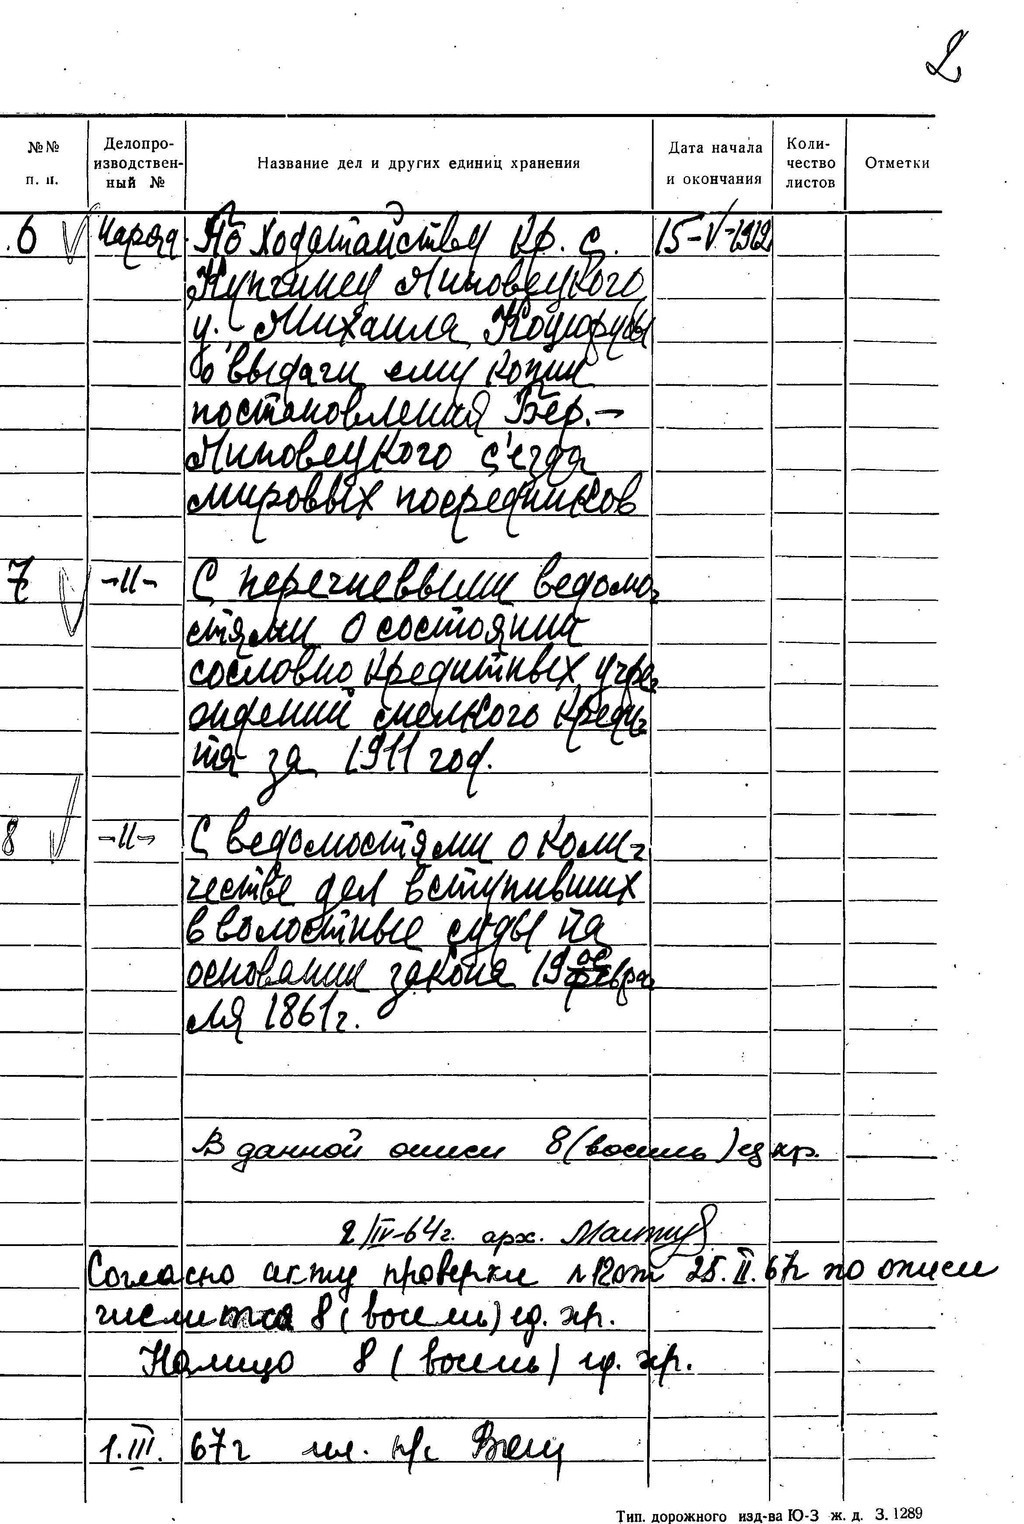 2
№№ п. п.
Делопро-
изводствен-
ный №
Название дел и других единиц хранения
Дата начала
и окончания
Коли-
чество
листов
Отметки
6 Наряд По ходатайству кр. с. 15-V-1912
Купчинец Липовецкого
у. Михаила
о выдачи ему копии
постановления Бер.-
Липовецкого с'езда
мировых посредников
7 -II- С перечневыми ведомо-
стями о состоянии
сословно кредитных учре-
ждений мелкого креди-
та за 1911 год.
8 -II- С ведомостями о коли-
честве дел вступивших
в волостные суды на
основании закона 19 февра-
ля 1861 г.
В данной описи 8 (восемь) ед хр.
2/IV-64 г. арх.
Согласно акту проверки №12 от 25.II.67г по описи
числится 8 (восемь) ед. хр.
Налицо 8 (восемь) ед. хр.
1.III. 67 г мл. н/с
Тип. дорожного изд-ва Ю-З ж. д. З. 1289